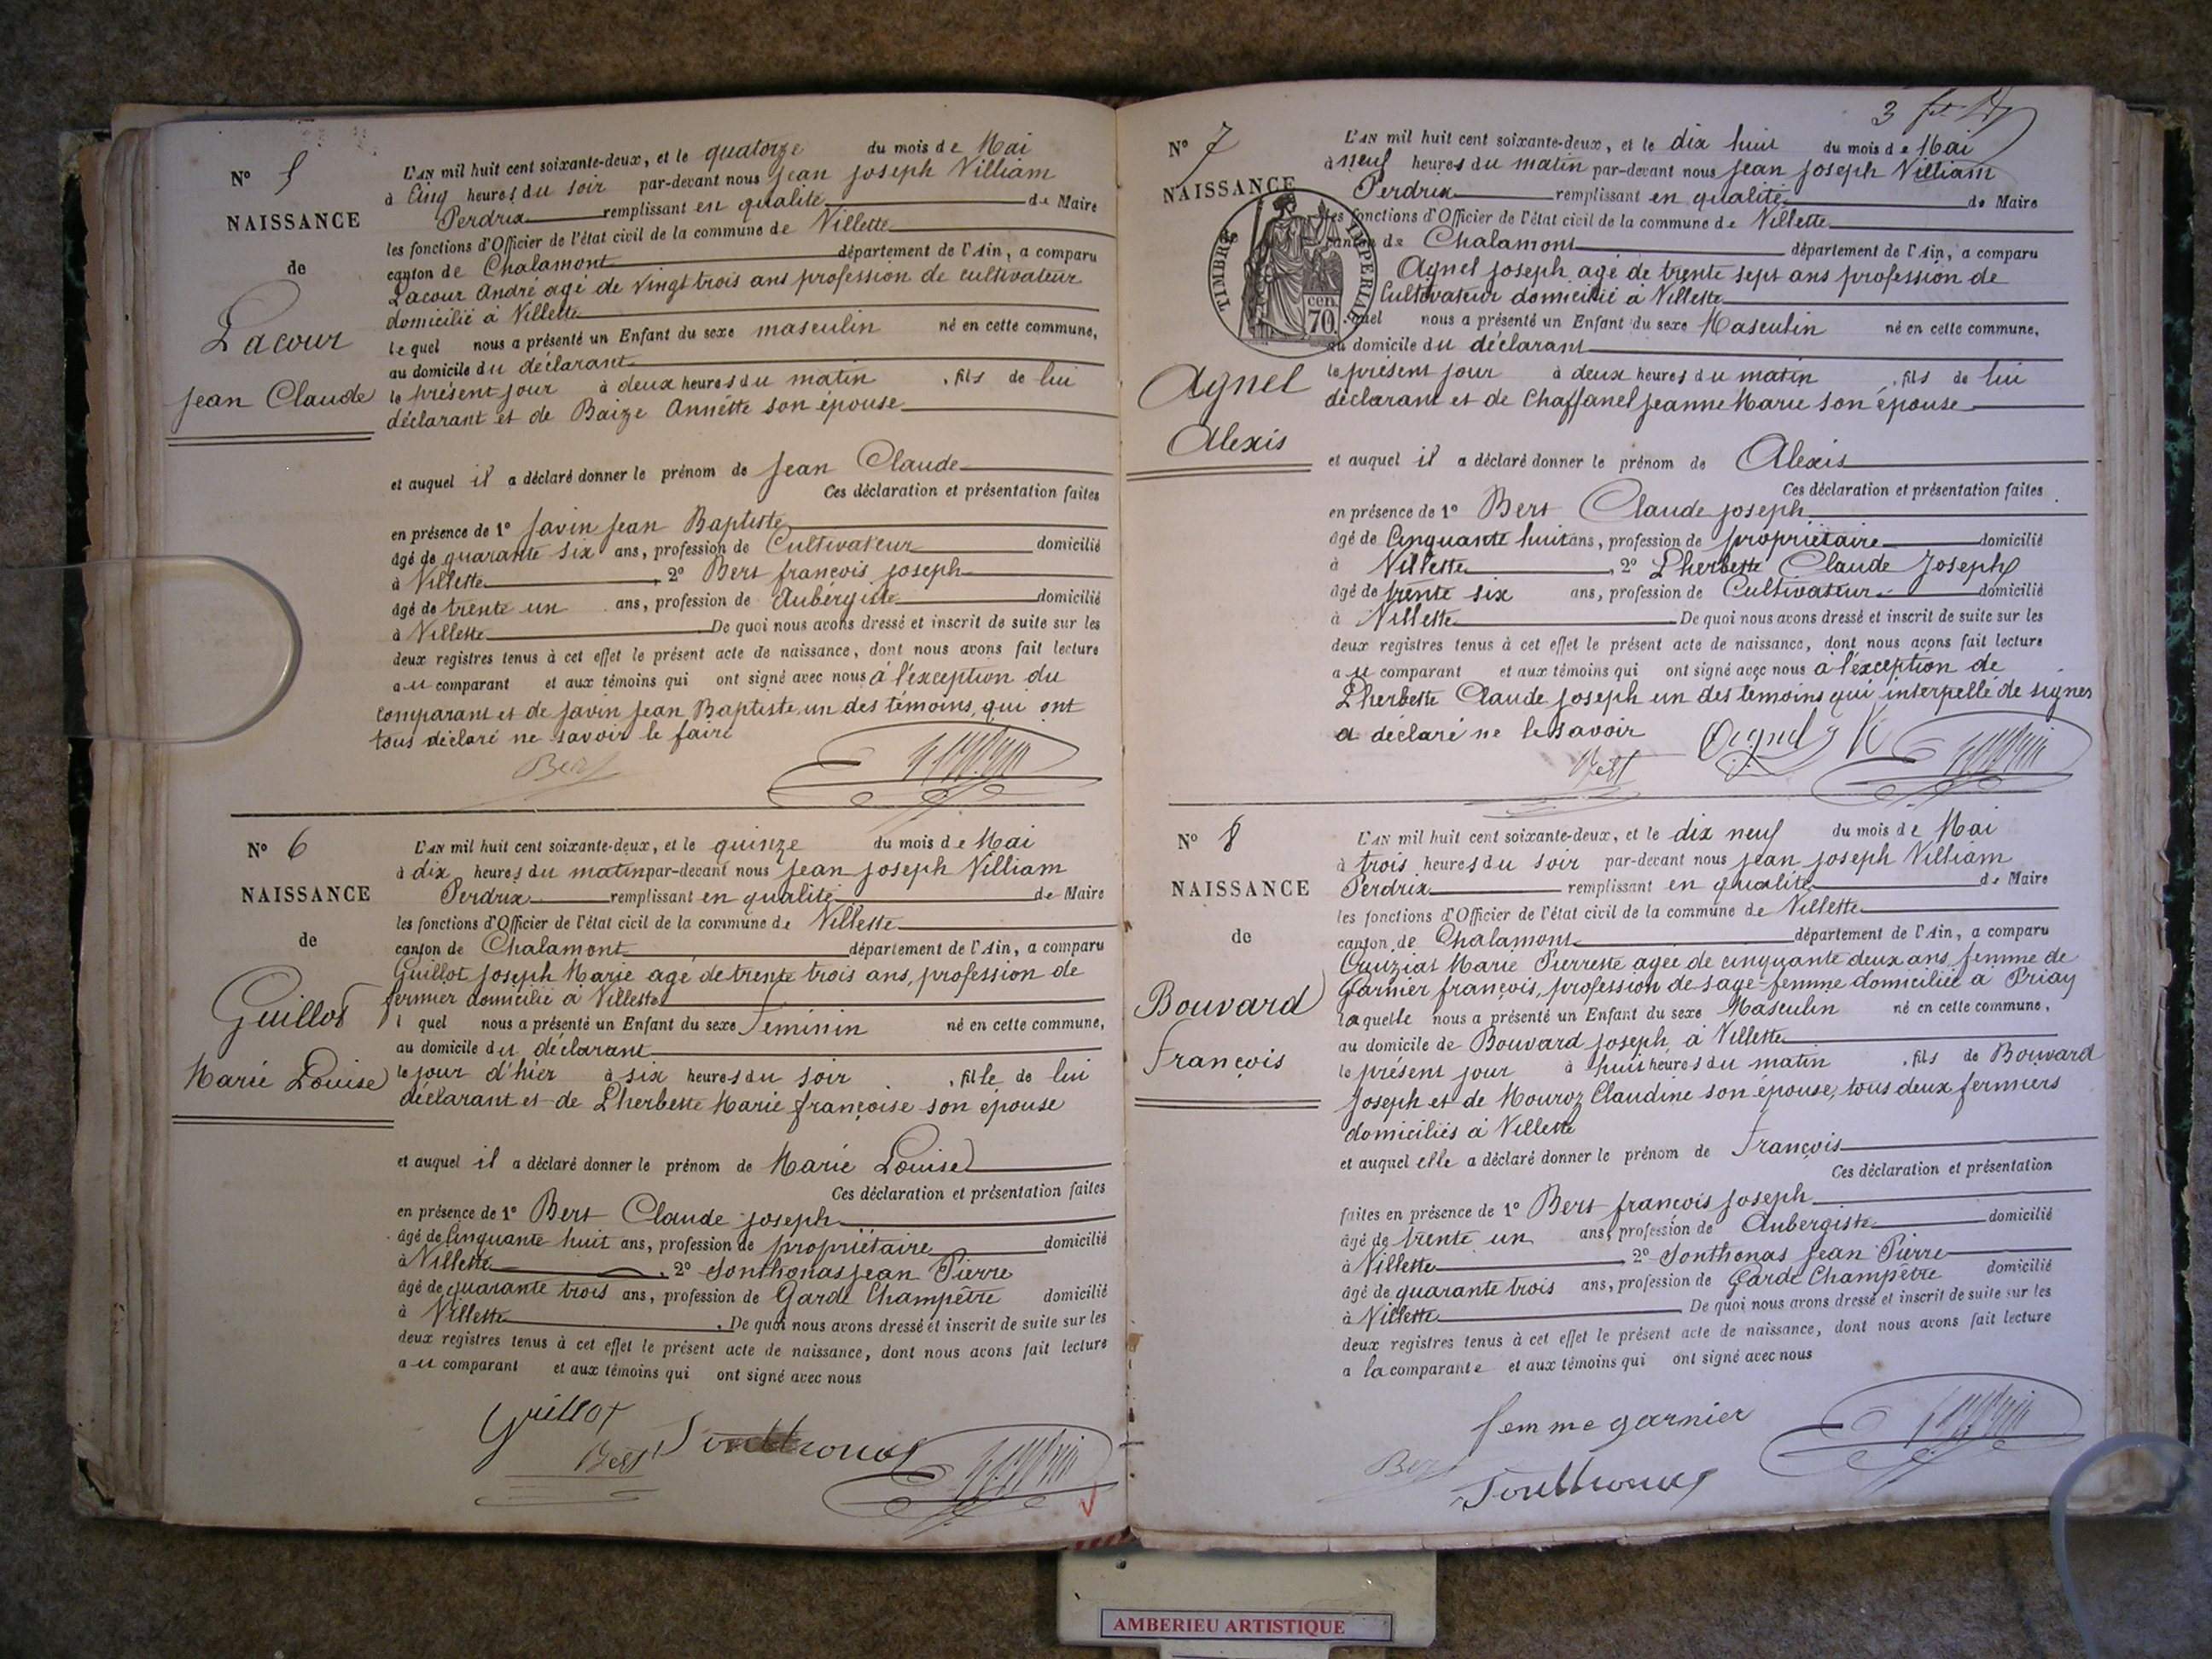 N° 5
NAISSANCE
de
Lacour
Jean Claude
L'AN mil huit cent soixante-deux, et le quatorze du mois de Mai
à Cinq heures du soir par-devant nous Jean Joseph Villiam
Perdrix remplissant en qualité de Maire
les fonctions d'Officier de l'état civil de la commune de Villette
canton de Chalamont département de l'Ain, a comparu
Lacour André agé de vingt trois ans profession de cultivateur
domicilié à Villette
lequel nous a présenté un Enfant du sexe masculin né en cette commune,
au domicile du déclarant
le présent jour à deux heures du matin , fils de lui
déclarant et de Baize Annette son épouse
et auquel il a déclaré donner le prénom de Jean Claude
Ces déclaration et présentation faites
en présence de 1° Javin Jean Baptiste
âgé de quarante six ans, profession de Cultivateur domicilié
à Villette , 2° Bert françois joseph
âgé de trente un ans, profession de Aubergiste domicilié
à Villette De quoi nous avons dressé et inscrit de suite sur les
deux registres tenus à cet effet le présent acte de naissance, dont nous avons fait lecture
au comparant et aux témoins qui ont signé avec nous à l'exception du
comparant et de Javin Jean Baptiste un des témoins, qui ont
tous déclaré ne savoir le faire
Bert
N° 6
NAISSANCE
de
Guillot
Marie Louise
L'AN mil huit cent soixante-deux, et le quinze du mois de Mai
à dix heures du matin par-devant nous Jean Joseph Villiam
Perdrix remplissant en qualité de Maire
les fonctions d'Officier de l'état civil de la commune de Villette
canton de Chalamont département de l'Ain, a comparu
Guillot Joseph Marie agé de trente trois ans, profession de
fermier domicilié à Villette
l quel nous a présenté un Enfant du sexe féminin né en cette commune,
au domicile du déclarant
le jour d'hier à six heures du soir , fille de lui
déclarant et de Lherbette Marie françoise son épouse
et auquel il a déclaré donner le prénom de Marie Louise
Ces déclaration et présentation faites
en présence de 1° Bert Claude joseph
âgé de Cinquante huit ans, profession de propriétaire domicilié
à Villette , 2° Sonthonas Jean Pierre
âgé de quarante trois ans, profession de Garde Champêtre domicilié
à Villette , De quoi nous avons dressé et inscrit de suite sur les
deux registres tenus à cet effet le présent acte de naissance, dont nous avons fait lecture
au comparant et aux témoins qui ont signé avec nous
Guillot
Bert Sonthonas
3
N° 7
NAISSANCE
TIMBRE IMPERIAL
cen. 70.
Agnel
Alexis
L'AN mil huit cent soixante-deux, et le dix huit du mois de Mai
à neuf heures du matin par-devant nous Jean Joseph Villiam
Perdrix remplissant en qualité de Maire
les fonctions d'Officier de l'état civil de la commune de Villette
canton de Chalamont département de l'Ain, a comparu
Agnel Joseph agé de trente sept ans profession de
Cultivateur domicilié à Villette
quel nous a présenté un Enfant du sexe Masculin né en cette commune,
au domicile du déclarant
le présent jour à deux heures du matin , fils de lui
déclarant et de Chaffanel Jeanne Marie son épouse
et auquel il a déclaré donner le prénom de Alexis
Ces déclaration et présentation faites
en présence de 1° Bert Claude joseph
âgé de Cinquante huit ans, profession de propriétaire domicilié
à Villette , 2° Lherbette Claude Joseph
âgé de trente six ans, profession de Cultivateur domicilié
à Villette De quoi nous avons dressé et inscrit de suite sur les
deux registres tenus à cet effet le présent acte de naissance, dont nous avons fait lecture
au comparant et aux témoins qui ont signé avec nous à l'exception de
Lherbette Claude Joseph un des témoins qui interpellé de signer
a déclaré ne le savoir
Agnel
Bert
N° 8
NAISSANCE
de
Bouvard
François
L'AN mil huit cent soixante-deux, et le dix neuf du mois de Mai
à trois heures du soir par-devant nous Jean Joseph Villiam
Perdrix remplissant en qualité de Maire
les fonctions d'Officier de l'état civil de la commune de Villette
canton de Chalamont département de l'Ain, a comparu
Cruziat Marie Pierrette agée de cinquante deux ans, femme de
Garnier françois, profession de sage-femme domiciliée à Priay
laquelle nous a présenté un Enfant du sexe Masculin né en cette commune,
au domicile de Bouvard Joseph à Villette
le présent jour à huit heures du matin , fils de Bouvard
Joseph et de Mouroz Claudine son épouse, tous deux fermiers
domiciliés à Villette
et auquel elle a déclaré donner le prénom de François
Ces déclaration et présentation
faites en présence de 1° Bert françois joseph
âgé de trente un ans, profession de Aubergiste domicilié
à Villette 2° Sonthonas Jean Pierre
âgé de quarante trois ans, profession de Garde Champêtre domicilié
à Villette De quoi nous avons dressé et inscrit de suite sur les
deux registres tenus à cet effet le présent acte de naissance, dont nous avons fait lecture
a la comparante et aux témoins qui ont signé avec nous
femme garnier
Bert
Sonthonas
AMBERIEU ARTISTIQUE